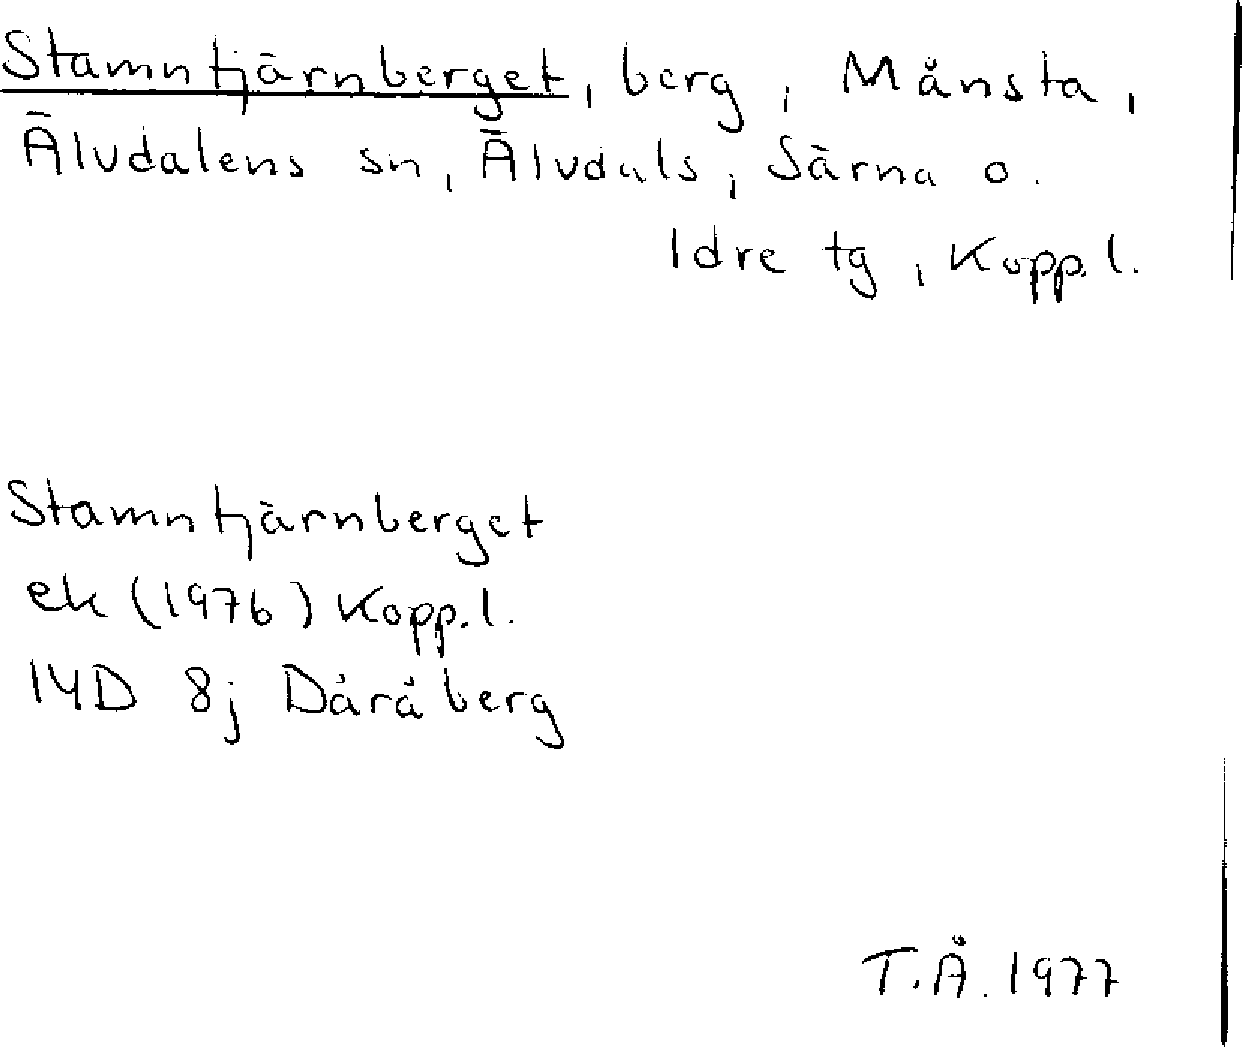 Stamntjärnberget, berg, Månsta,
Älvdalens sn, Älvdals, Särna o.
Idre tg, Kopp.l.
Stamntjärnberget
ek (1976) Kopp.l.
14D 8j Dåråberg
T.Å. 1977